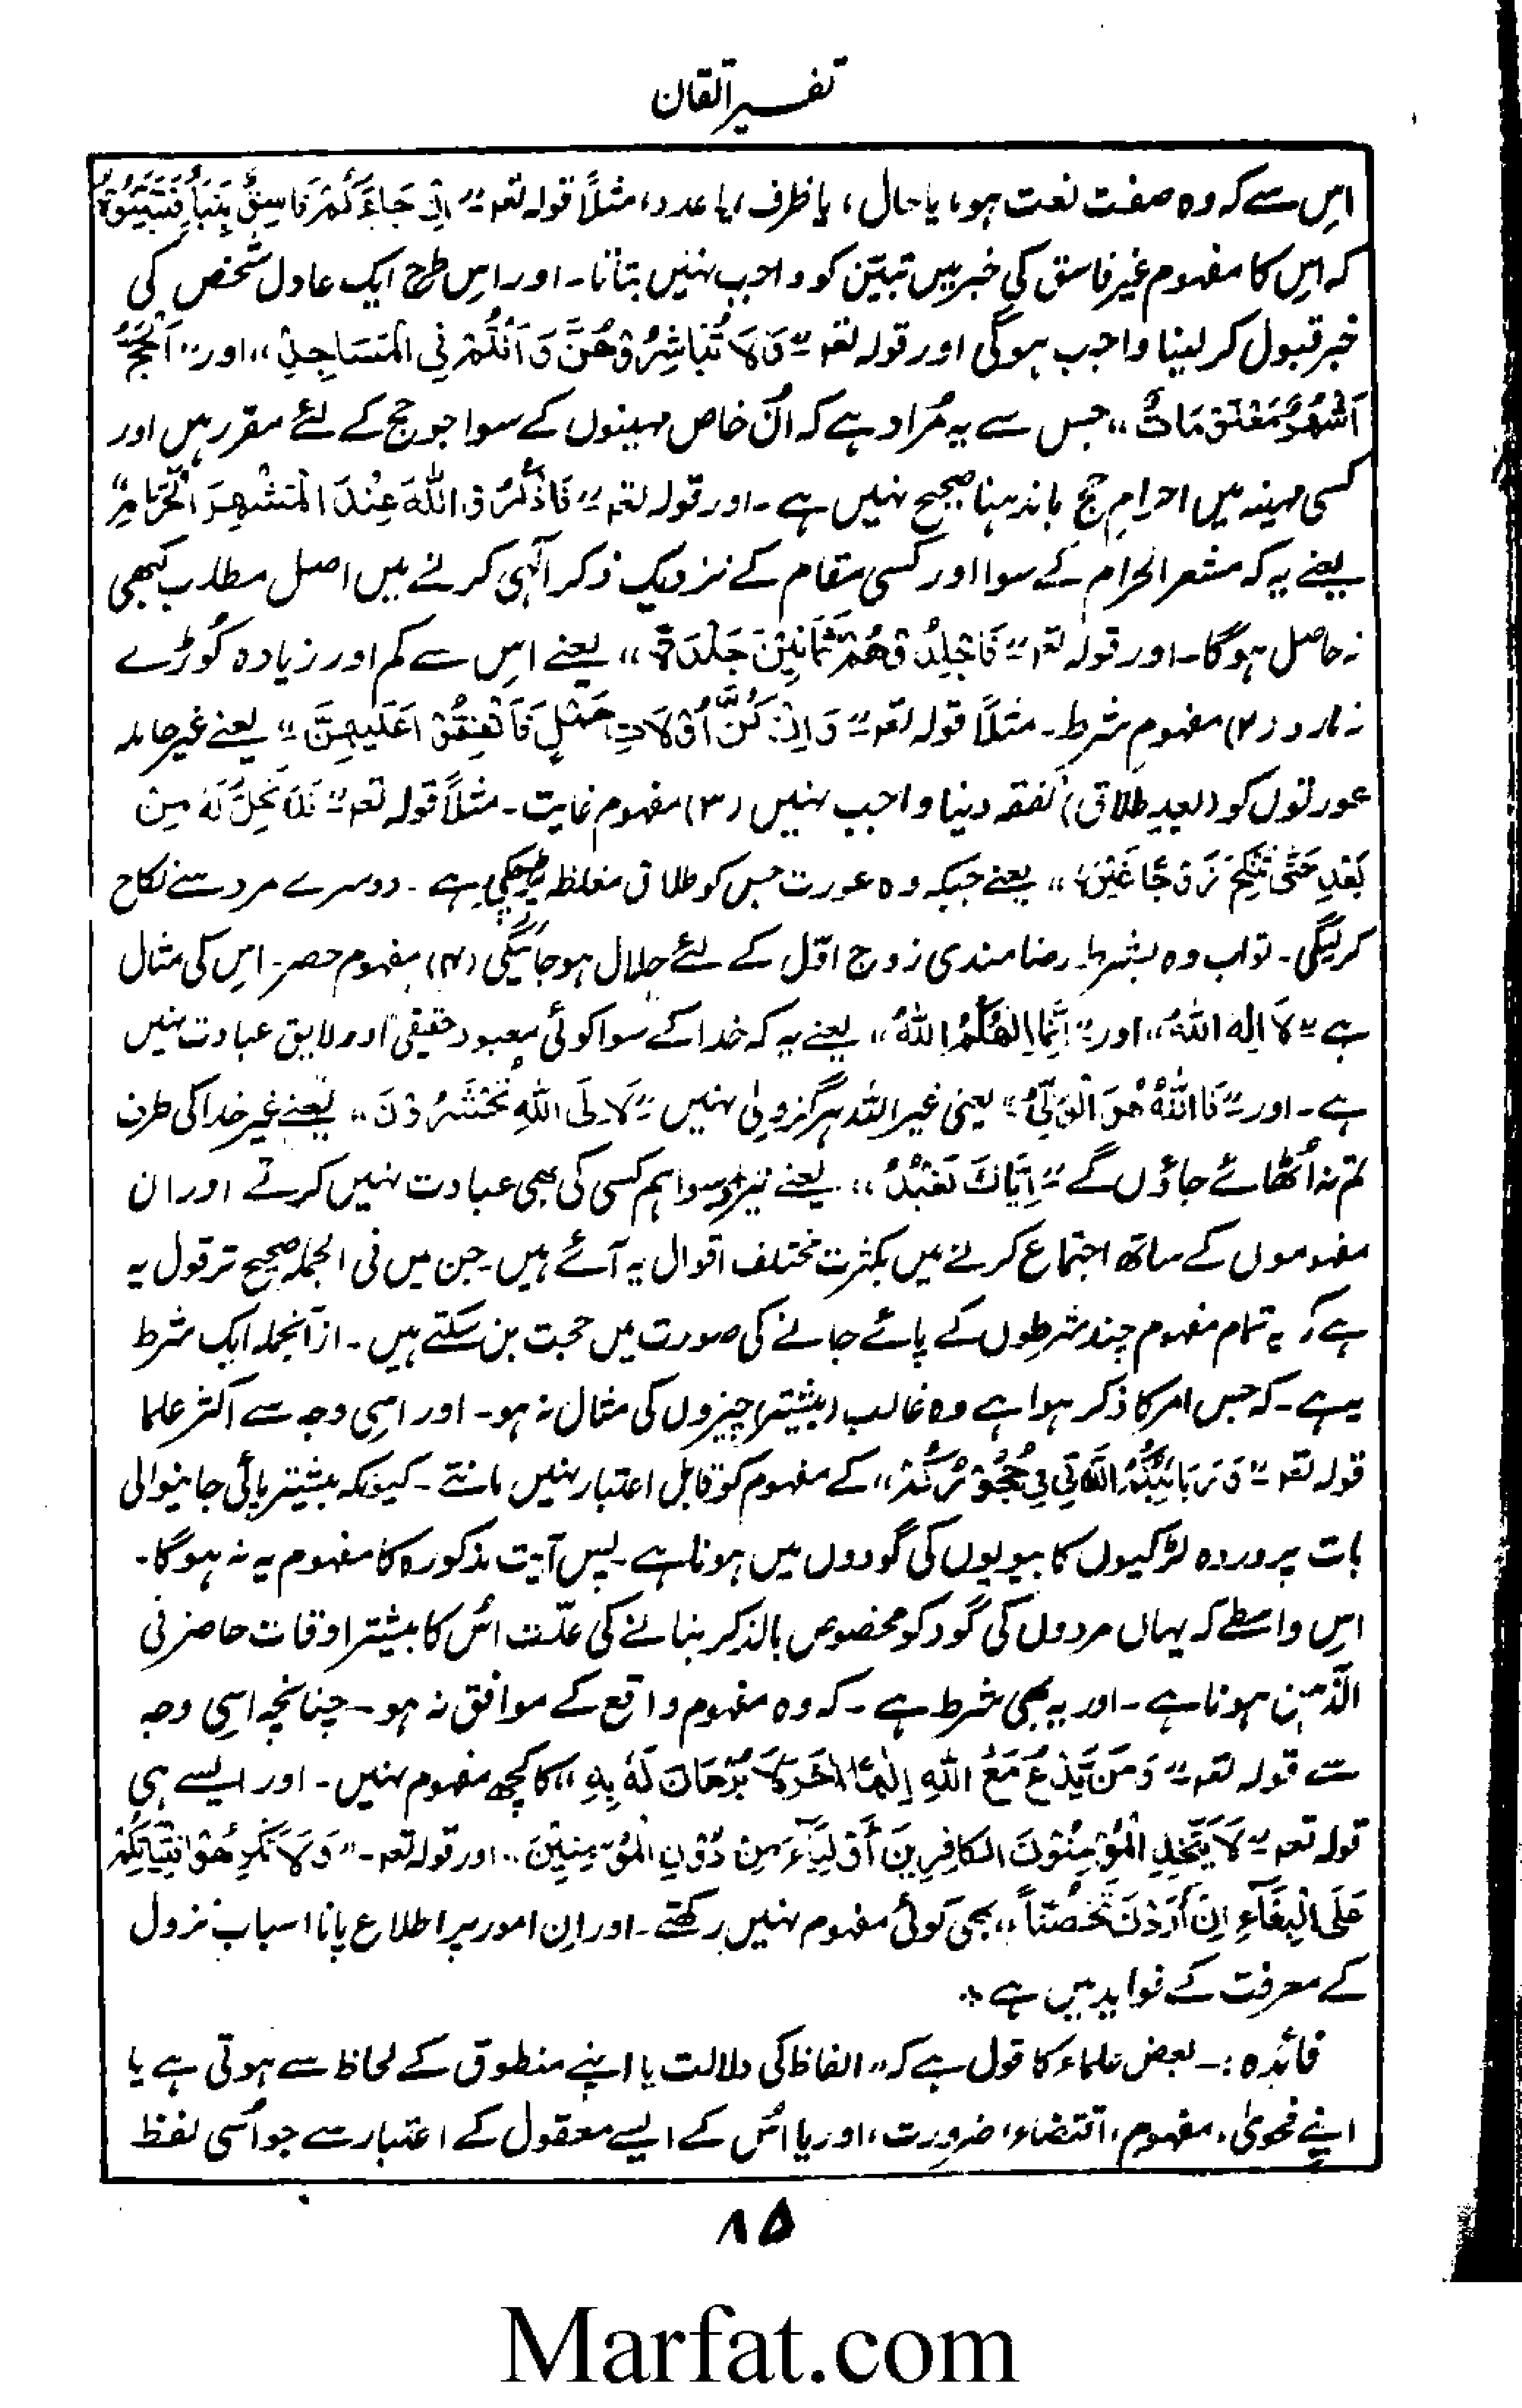 تفسیر اتقان
اس سے کہ وہ صفت نعت ہو، یا حال، یا ظرف، یا عدد، مثلاً قولہ تعہ "اِنْ جَاءَكُمْ فَاسِقٌ بِنَبَاٍ فَتَبَيَّنُوْا"
کہ اِس کا مفہوم غیر فاسق کی خبر میں تبیّن کو واجب نہیں بتاتا۔ اور اِس طرح ایک عادل شخص کی
خبر قبول کر لینا واجب ہوگی اور قولہ تعہ "وَلَا تُبَاشِرُوْهُنَّ وَاَنْتُمْ فِي الْمَسَاجِدِ" اور "اَلْحَجُّ
اَشْهُرٌ مَعْلُوْمَاتٌ" جس سے یہ مُراد ہے کہ اُن خاص مہینوں کے سوا جو حج کے لئے مقرر ہیں اور
کسی مہینہ میں احرامِ حج باندہنا صحیح نہیں ہے۔ اور قولہ تعہ "فَاذْكُرُوا اللّٰهَ عِنْدَ الْمَشْعَرِ الْحَرَامِ"
یعنے یہ کہ مشعر الحرام کے سوا اور کسی مقام کے نزدیک ذکر الٰہی کرنے میں اصل مطلب کبھی
نہ حاصل ہوگا۔ اور قولہ تعہ "فَاجْلِدُوْهُمْ ثَمَانِيْنَ جَلْدَةً" یعنے اِس سے کم اور زیادہ کُوڑے
نہ مارو (۲) مفہوم شرط۔ مثلاً قولہ تعہ "وَاِنْ كُنَّ اُوْلَاتِ حَمْلٍ فَاَنْفِقُوْا عَلَيْهِنَّ" یعنے غیر حاملہ
عورتوں کو (بعد طلاق) نفقہ دینا واجب نہیں (۳) مفہوم غایت۔ مثلاً قولہ تعہ "فَلَا تَحِلُّ لَهُ مِنْ
بَعْدُ حَتّٰى تَنْكِحَ زَوْجًا غَيْرَهُ" یعنے جبکہ وہ عورت جس کو طلاق مغلظہ پڑچکی ہے۔ دوسرے مرد سے نکاح
کرلیگی۔ تو اب وہ بشرط رضامندی زوج اوّل کے لئے حلال ہوجائیگی (۴) مفہوم حصر۔ اِس کی مثال
ہے "لَا اِلٰهَ اللّٰهُ" اور "اِنَّمَا اِلٰهُكُمُ اللّٰهُ" یعنے یہ کہ خدا کے سوا کوئی معبود حقیقی اور لایق عبادت نہیں
ہے۔ اور "فَاللّٰهُ هُوَ الْوَلِيُّ" یعنی غیر اللہ ہرگز ولی نہیں "لَاِلَى اللّٰهِ تُحْشَرُوْنَ" یعنے غیر خدا کی طرف
تم نہ اُٹھائے جاؤں گے "اِيَّاكَ نَعْبُدُ" یعنے تیرے سوا ہم کسی کی بھی عبادت نہیں کرتے اور ان
مفہوموں کے ساتھ اجتماع کرنے میں بکثرت مختلف اقوال یہ آئے ہیں۔ جن میں فی الجملہ صحیح تر قول یہ
ہے کہ یہ تمام مفہوم چند شرطوں کے پائے جانے کی صورت میں حجت بن سکتے ہیں۔ ازآنجملہ ایک شرط
یہ ہے۔ کہ جس امر کا ذکر ہوا ہے وہ غالب (بیشتر) چیزوں کی مثال نہ ہو۔ اور اسی وجہ سے اکثر علما
قولہ تعہ "وَرَبَائِبُكُمُ اللَّاتِي فِي حُجُوْرِكُمْ" کے مفہوم کو قابل اعتبار نہیں مانتے۔ کیونکہ بیشتر پائی جانیوالی
بات پروردہ لڑکیوں کا بیویوں کی گودوں میں ہونا ہے۔ پس آیت مذکورہ کا مفہوم یہ نہ ہوگا۔
اِس واسطے کہ یہاں مردوں کی گود کو مخصوص بالذکر بنانے کی علّت اُس کا بیشتر اوقات حاضر فی
الذہن ہونا ہے۔ اور یہ بھی شرط ہے۔ کہ وہ مفہوم واقع کے موافق نہ ہو۔ چنانچہ اسی وجہ
سے قولہ تعہ "وَمَنْ يَّدْعُ مَعَ اللّٰهِ اِلٰهًا اٰخَرَ لَا بُرْهَانَ لَهُ بِهِ" کا کچھ مفہوم نہیں۔ اور ایسے ہی
قولہ تعہ "لَا يَتَّخِذِ الْمُؤْمِنُوْنَ الْكَافِرِيْنَ اَوْلِيَآءَ مِنْ دُوْنِ الْمُؤْمِنِيْنَ" اور قولہ تعہ۔ "وَلَا تُكْرِهُوْا فَتَيَاتِكُمْ
عَلَى الْبِغَآءِ اِنْ اَرَدْنَ تَحَصُّنًا" بھی کوئی مفہوم نہیں رکھتے۔ اور اِن امور پر اطلاع پانا اسباب نزول
کے معرفت کے فواید میں ہے *
فائدہ :۔ بعض علماء کا قول ہے کہ "الفاظ کی دلالت یا اپنے منطوق کے لحاظ سے ہوتی ہے یا
اپنے فحویٰ، مفہوم، اقتضاء، ضرورت، اور یا اُس کے ایسے معقول کے اعتبار سے جو اُسی لفظ
۸۵
Marfat.com